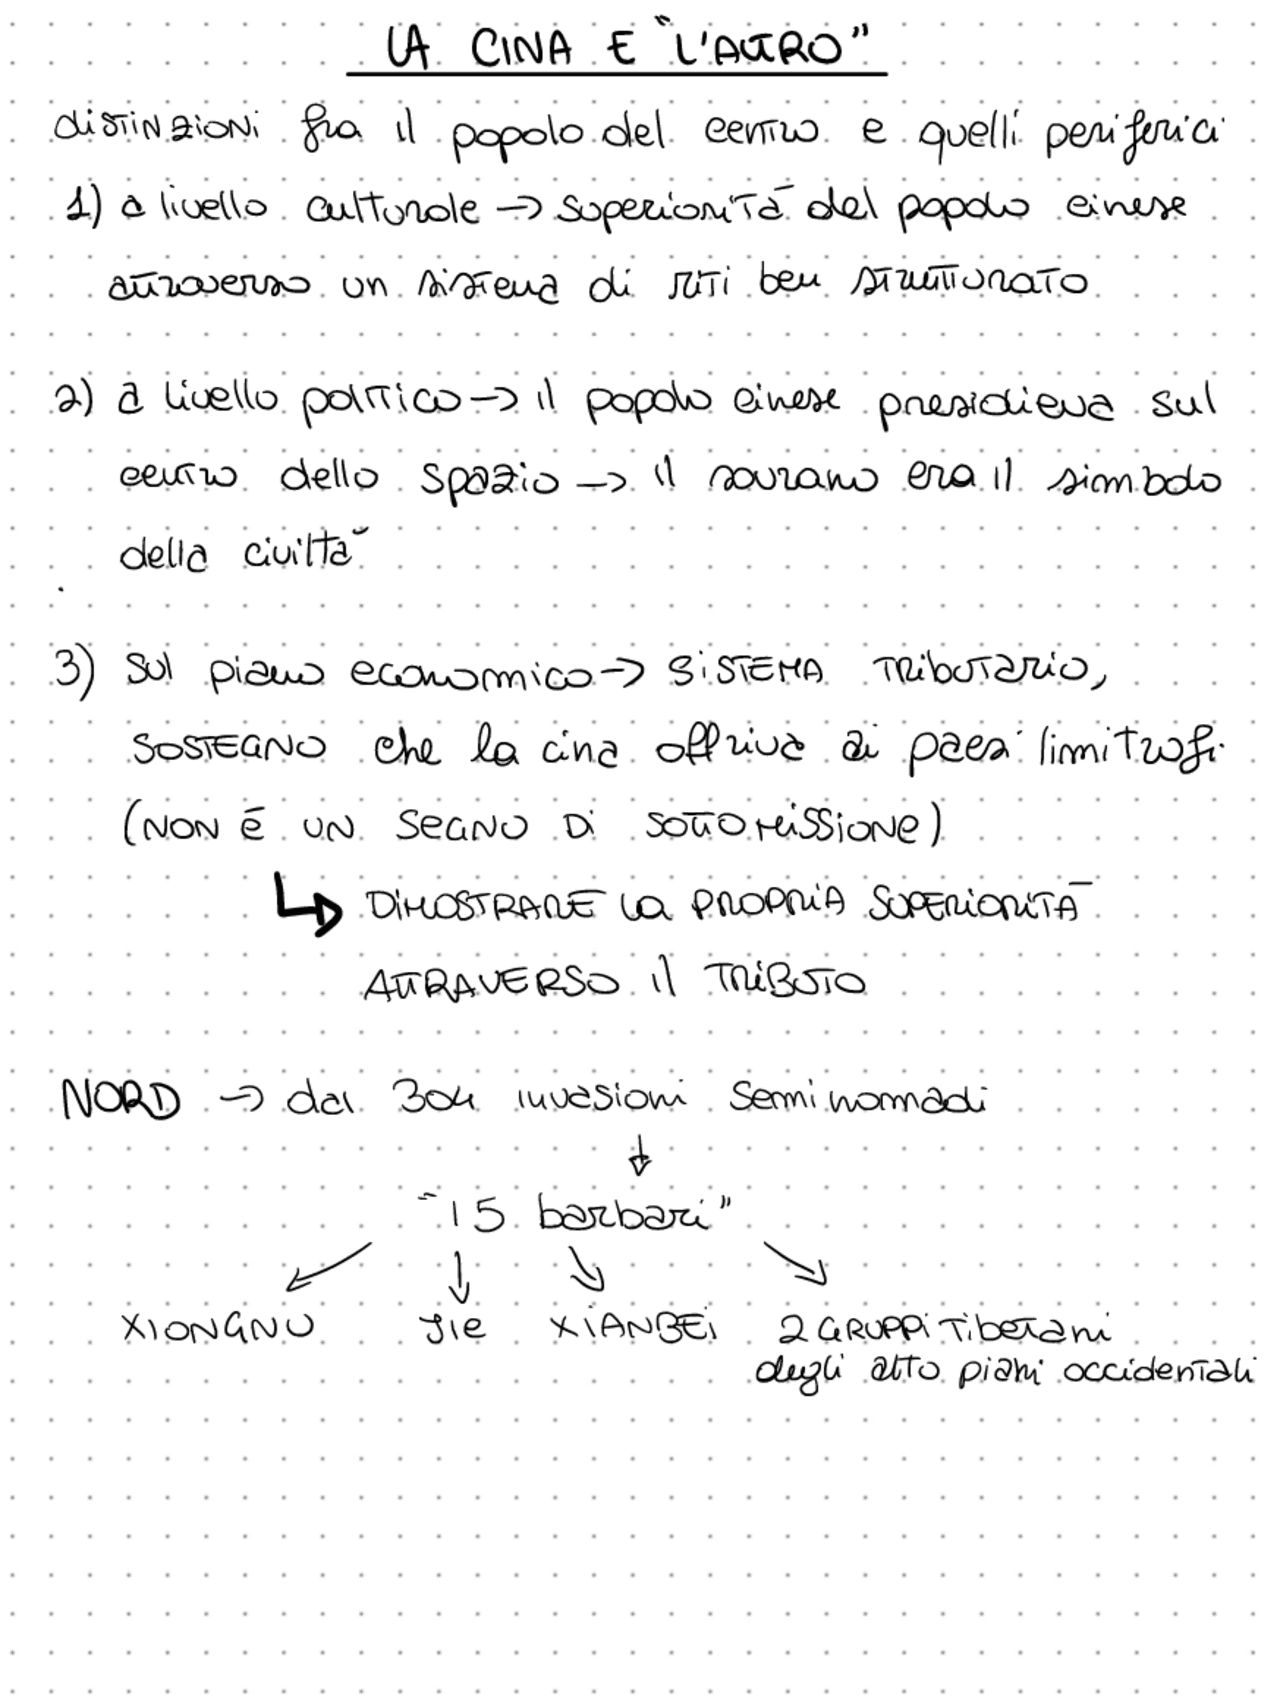 LA CINA E "L'ALTRO"
distinzioni fra il popolo del centro e quelli periferici
1) a livello culturale → superiorità del popolo cinese
attraverso un sistema di riti ben strutturato
2) a livello politico → il popolo cinese presidieva sul
centro dello spazio → il sovrano era il simbolo
della civiltà
3) sul piano economico → SISTEMA TRIBUTARIO,
SOSTEGNO che la cina offriva ai paesi limitrofi
(NON È UN SEGNO DI SOTTOMISSIONE)
↳ DIMOSTRARE LA PROPRIA SUPERIORITÀ
ATTRAVERSO IL TRIBUTO
NORD → dal 304 invasioni seminomadi
↓
"I 5 barbari"
XIONGNU JIE XIANBEI 2 GRUPPI Tibetani
degli alto piani occidentali